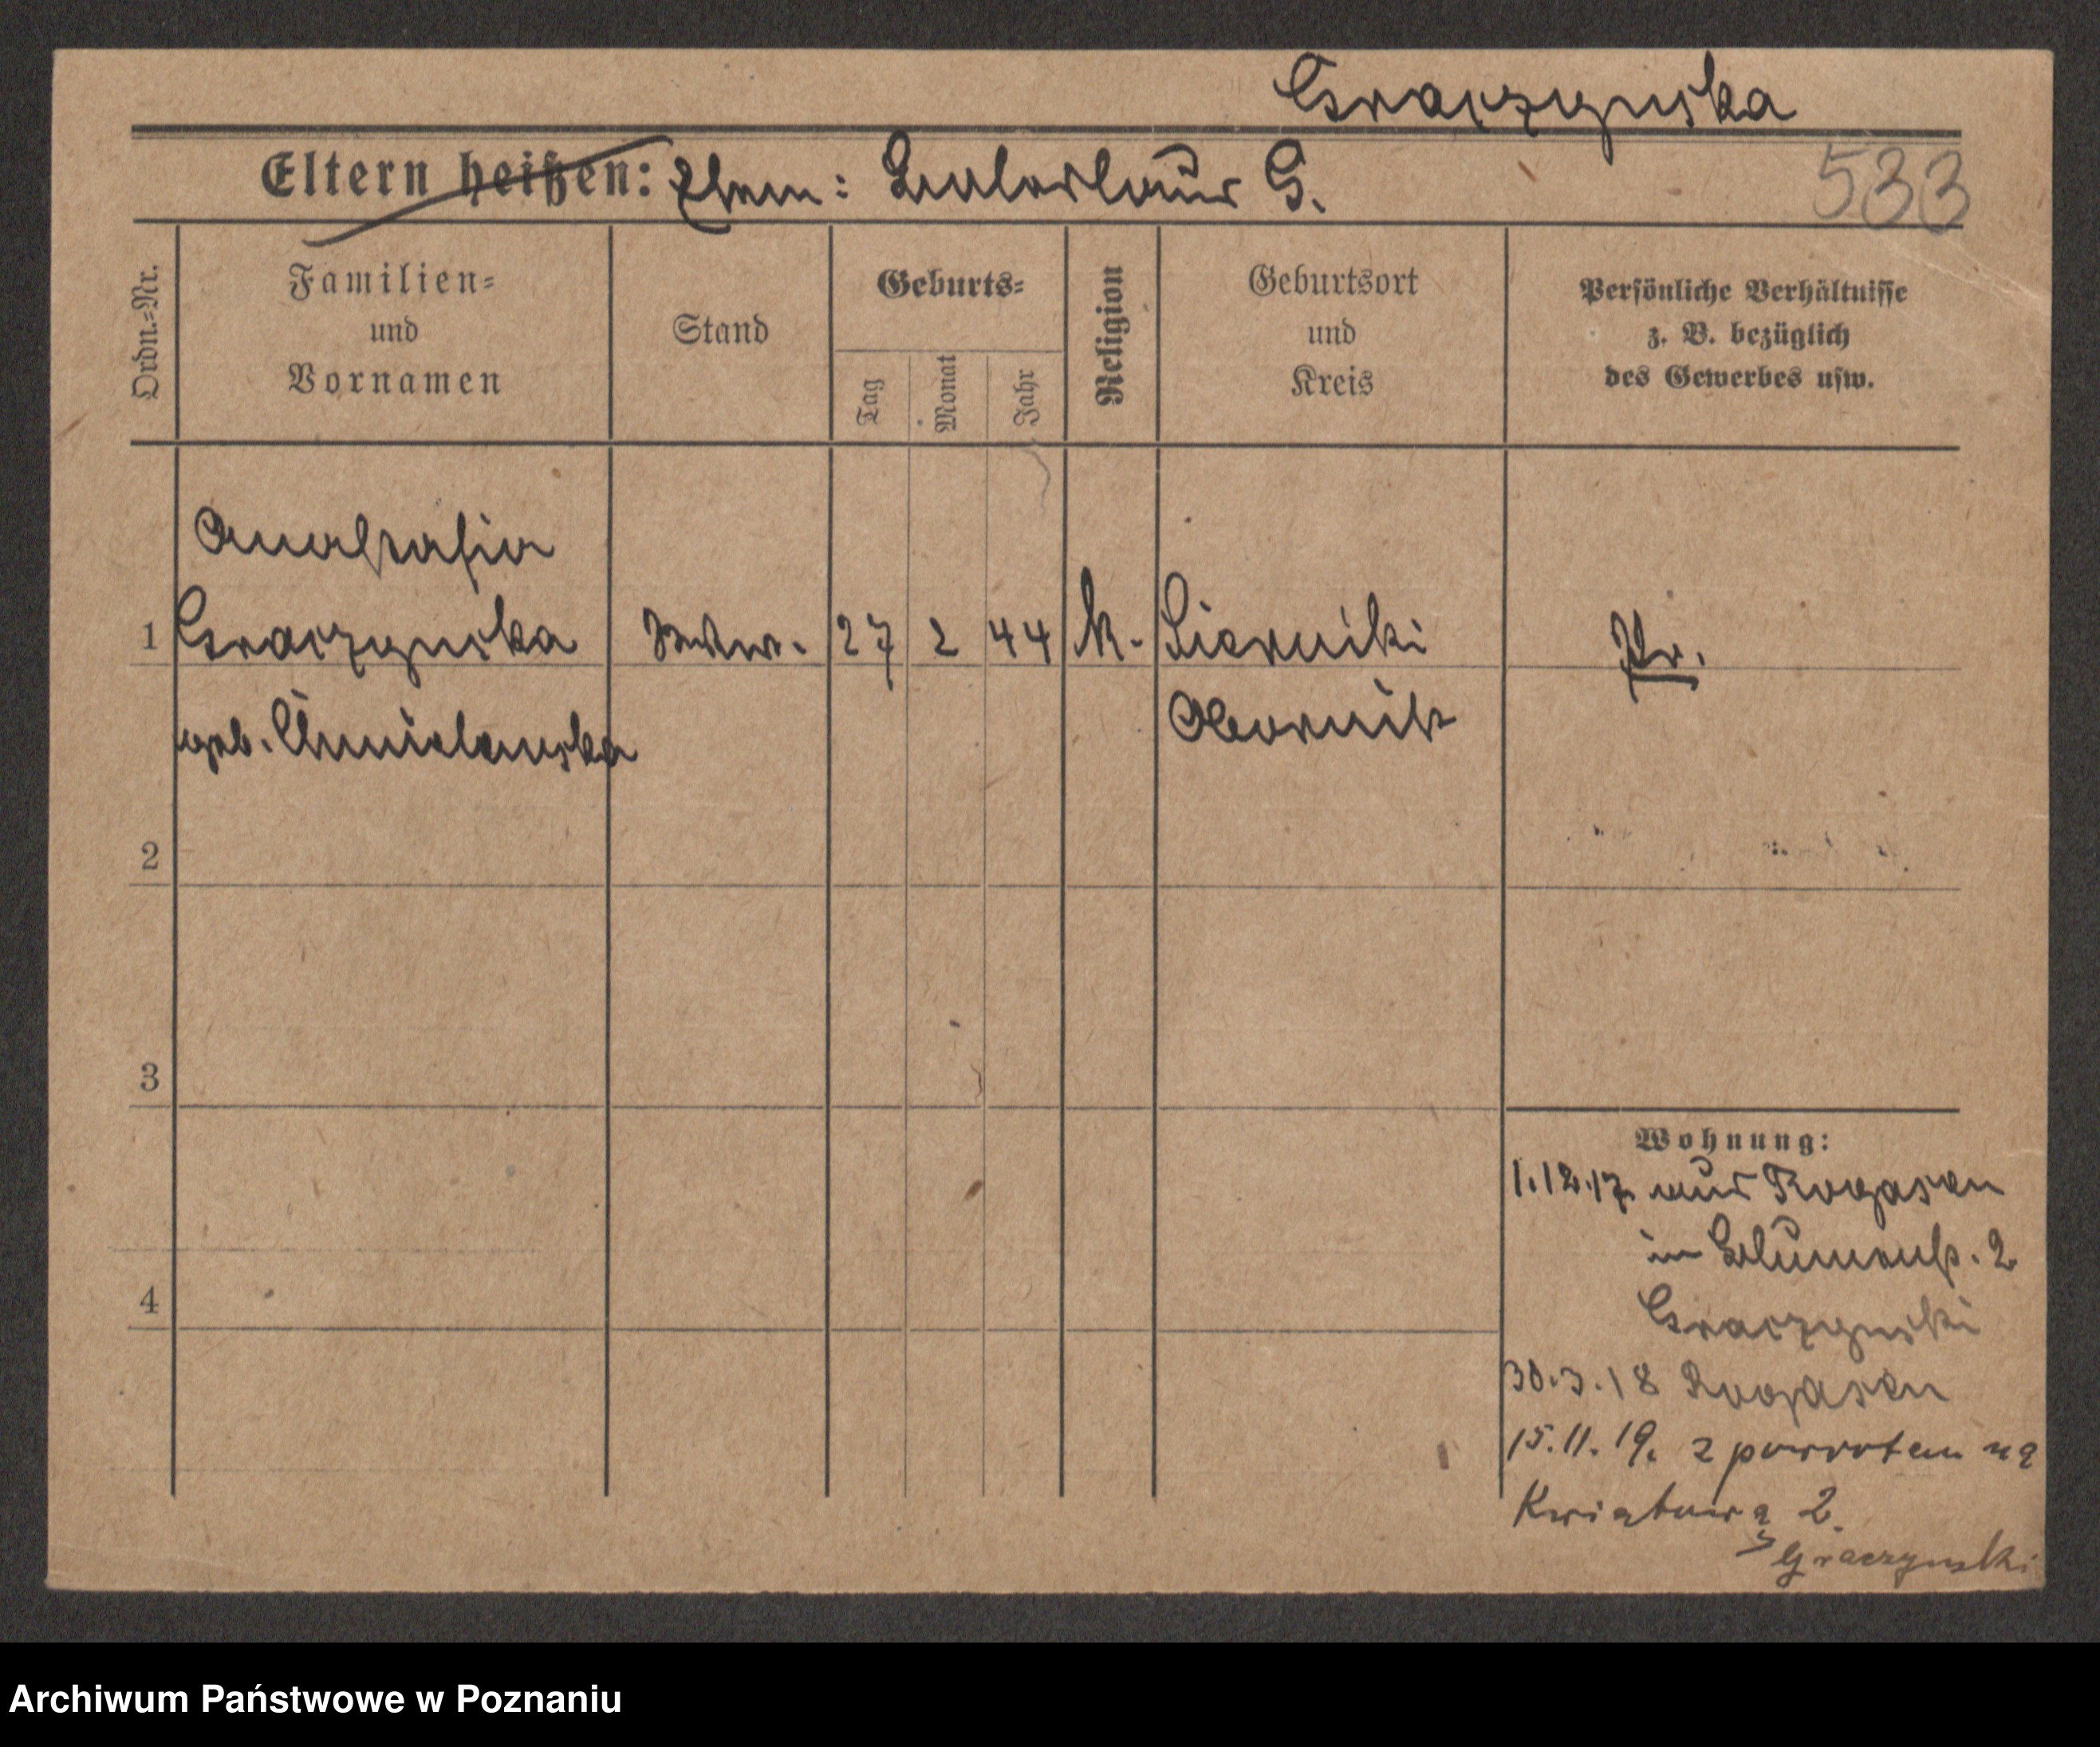 Graczynska
Eltern heißen: Ehem: Ladislaus G.
533
Ordn.-Nr.
Familien-
und
Vornamen
Stand
Geburts-
Tag
Monat
Jahr
Religion
Geburtsort
und
Kreis
Persönliche Verhältnisse
z. B. bezüglich
des Gewerbes usw.
Anastasia
1 Graczynska Wtw. 27 2 44 k. Sierniki Pr.
geb. Chmielewska Obornik
2
3
4
Wohnung:
1.12.17. aus Rogasen
in Blumenstr. 2
Graczynski
30.3.18 Rogasen
15.11.19. z powrotem na
Kwiatową 2.
Graczynski
Archiwum Państwowe w Poznaniu